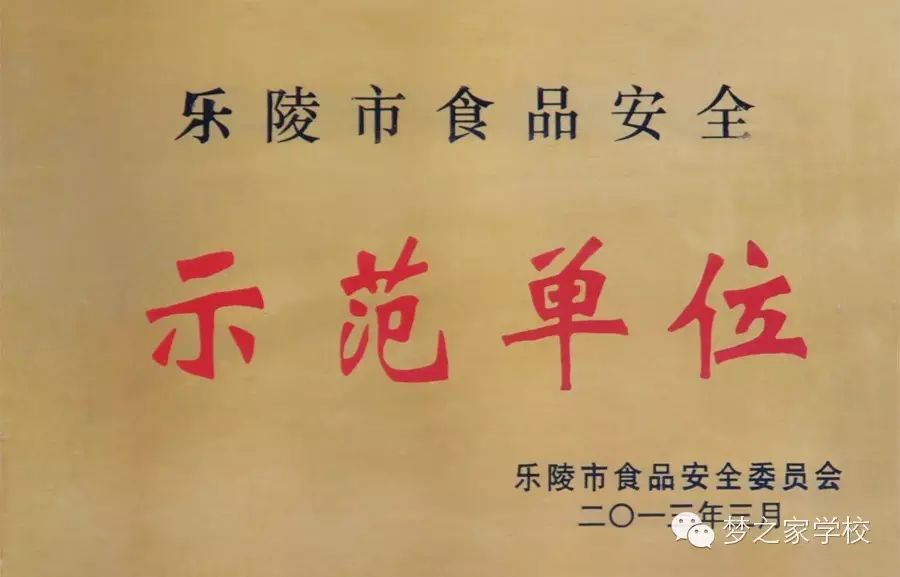 乐陵市食品安全
示范单位
乐陵市食品安全委员会
二〇一三年三月
梦之家学校